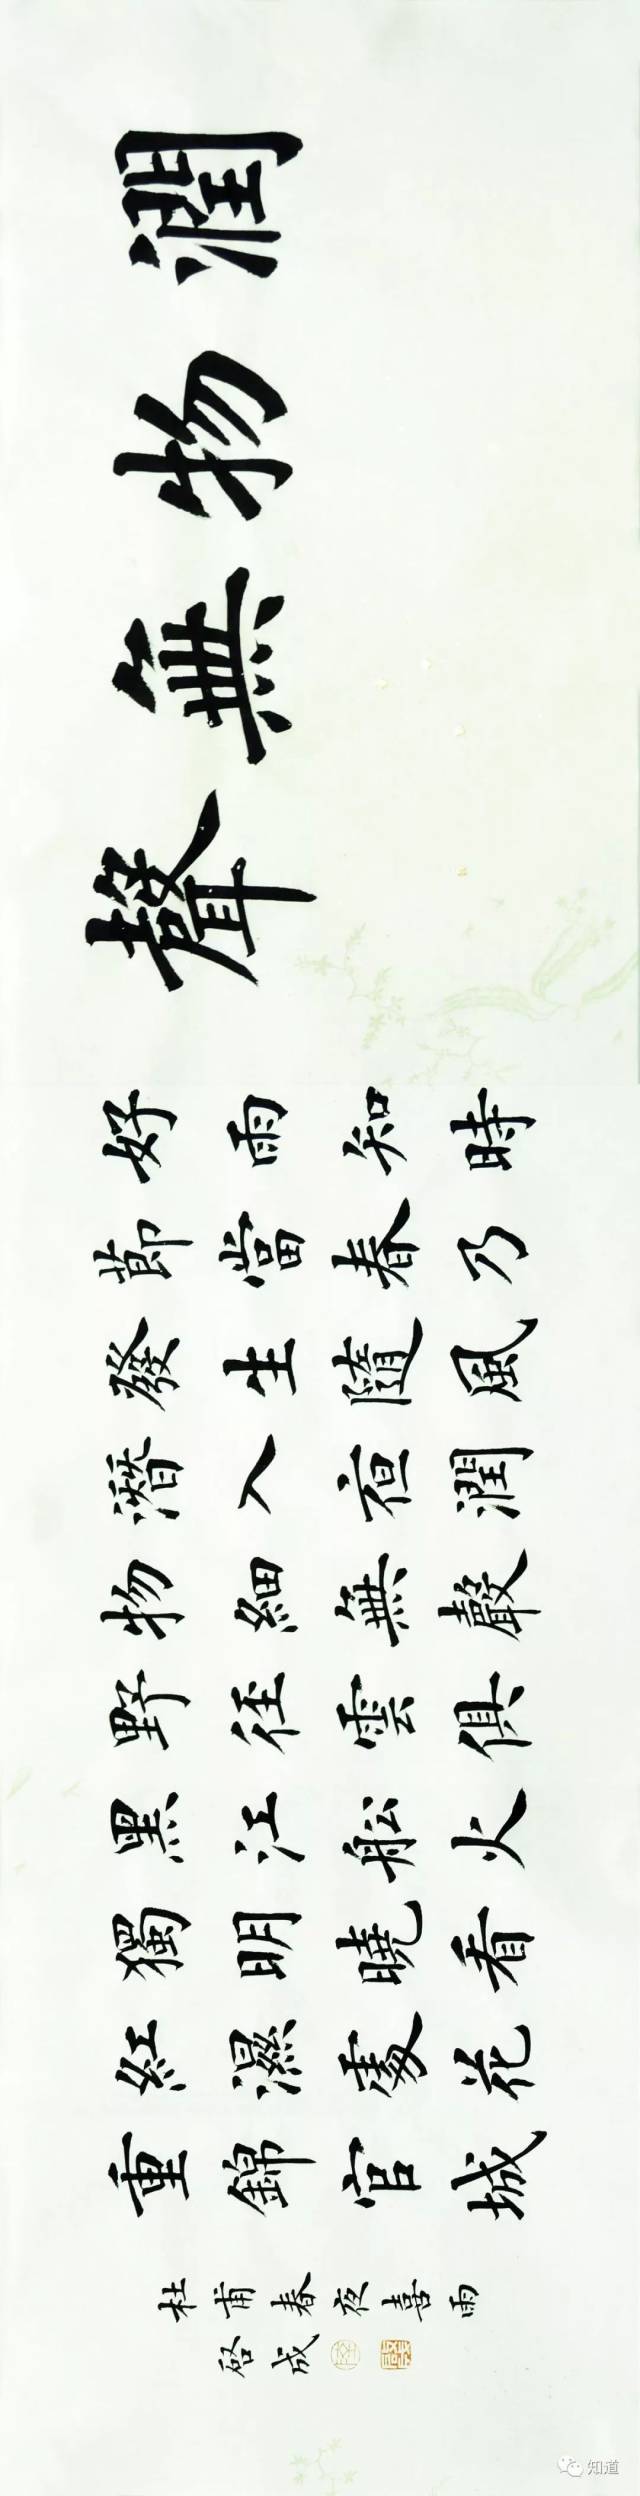 潤物無聲
好雨知時
節當春乃
發生隨風
潛入夜潤
物細無聲
野徑雲俱
黑江舩火
獨明曉看
紅濕處花
重錦官城
杜甫春夜喜雨
啓成
知道